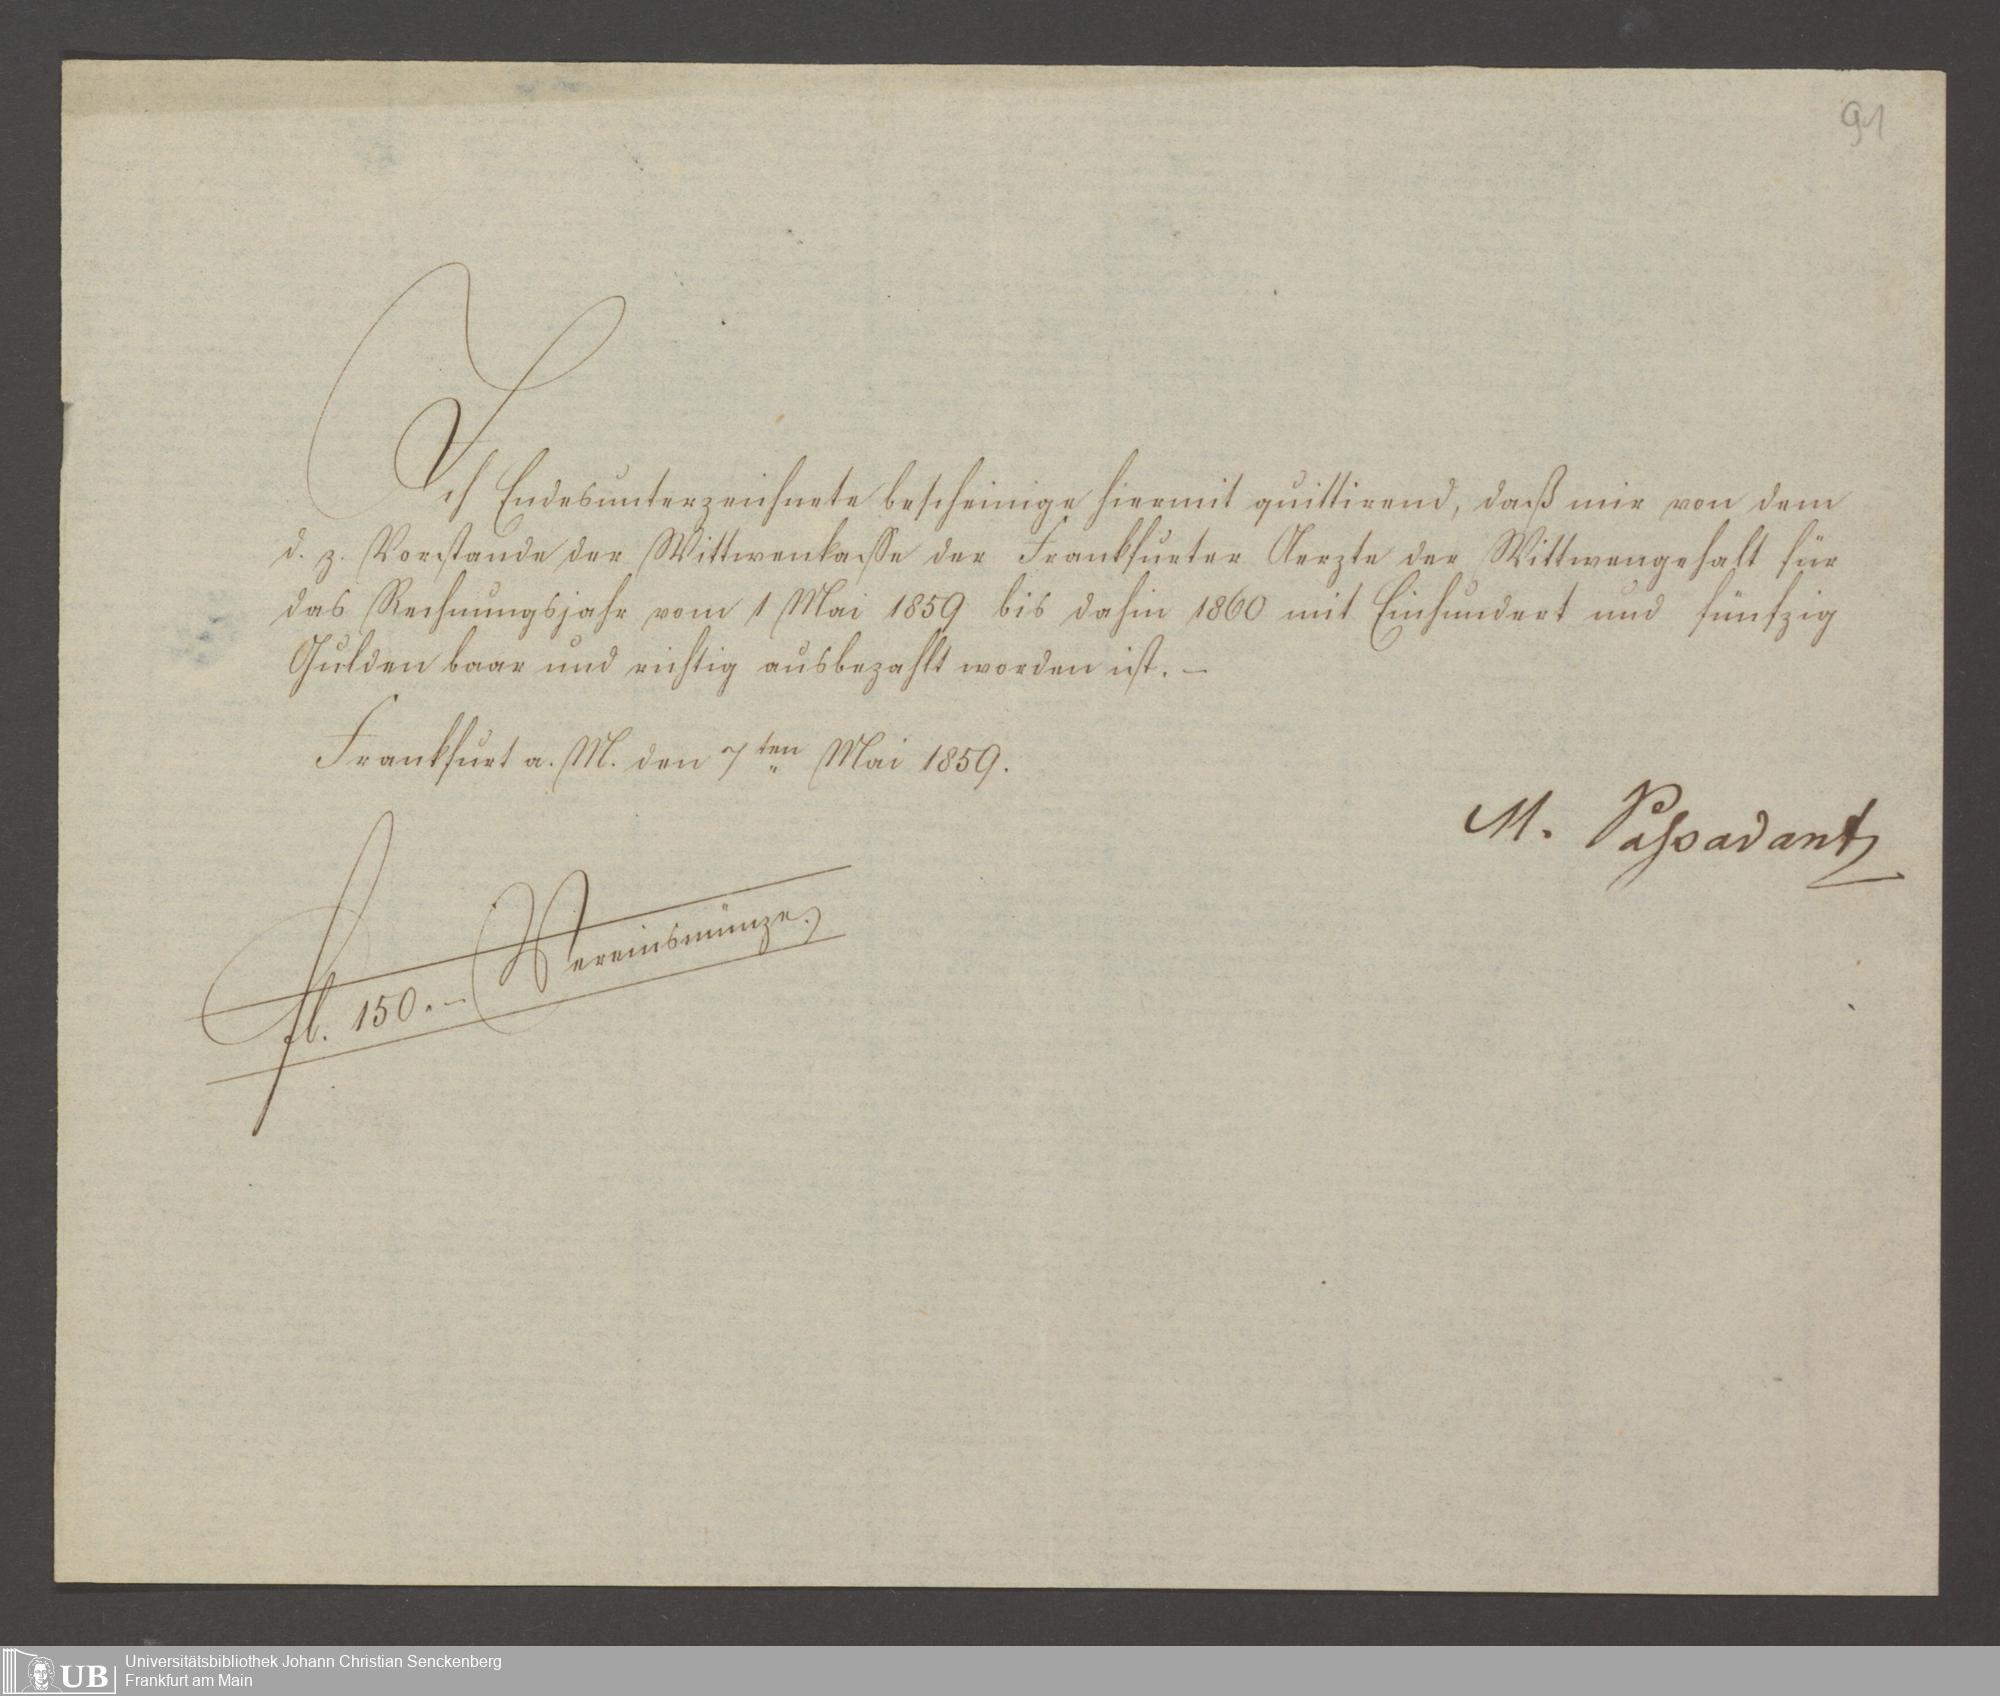 91
Ich Endesunterzeichnete bescheinige hiermit quittirend, daß mir von dem
d. z. Vorstande der Wittwenkasse der Frankfurter Aerzte der Wittwengehalt für
das Rechnungsjahr vom 1 Mai 1859 bis dahin 1860 mit Einhundert und fünfzig
Gulden baar und richtig ausbezahlt worden ist. –
Frankfurt a. M. den 7ten Mai 1859.
M. Passavant
fl. 150. – Vereinsmünze.
UB
Universitätsbibliothek Johann Christian Senckenberg
Frankfurt am Main